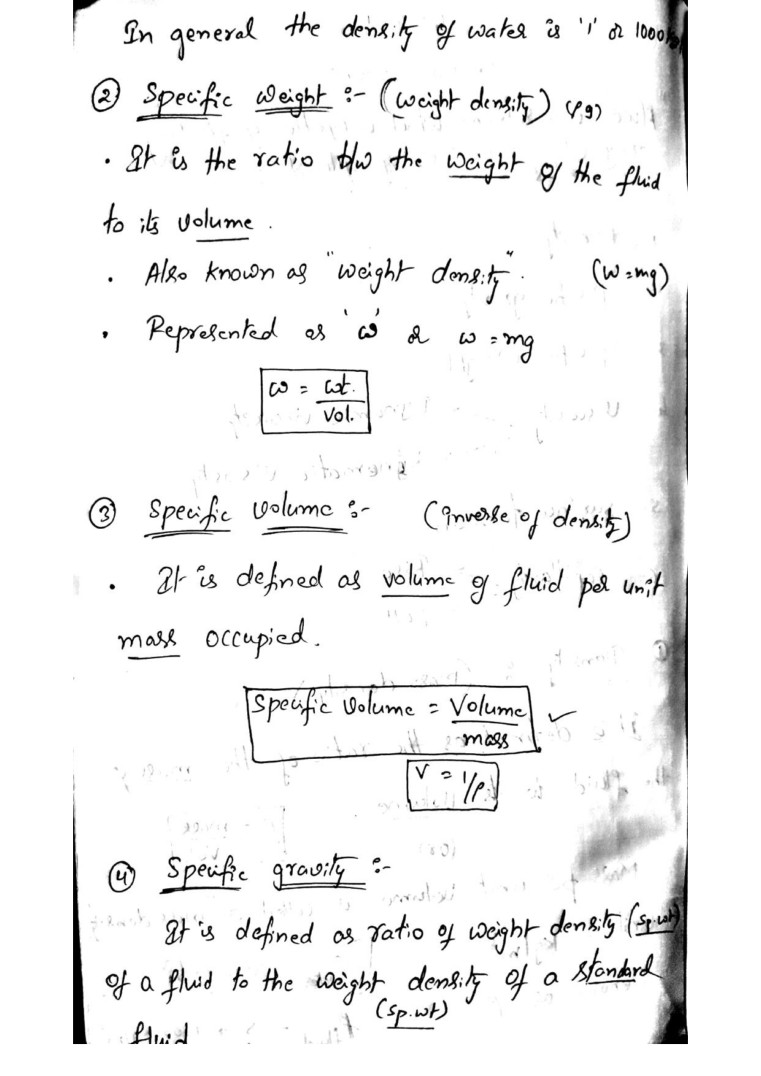 In general the density of water is '1' or 1000
② Specific Weight :- (weight density) (ρg)
· It is the ratio b/w the weight of the fluid
to its volume.
· Also known as "weight density". (W=mg)
· Represented as 'ω' or ω = mg
ω = wt. / Vol.
③ Specific Volume :- (inverse of density)
· It is defined as volume of fluid per unit
mass occupied.
Specific Volume = Volume / mass ✓
V = 1/ρ
④ Specific gravity :-
It is defined as ratio of weight density (sp.wt)
of a fluid to the weight density of a standard
(sp.wt)
fluid